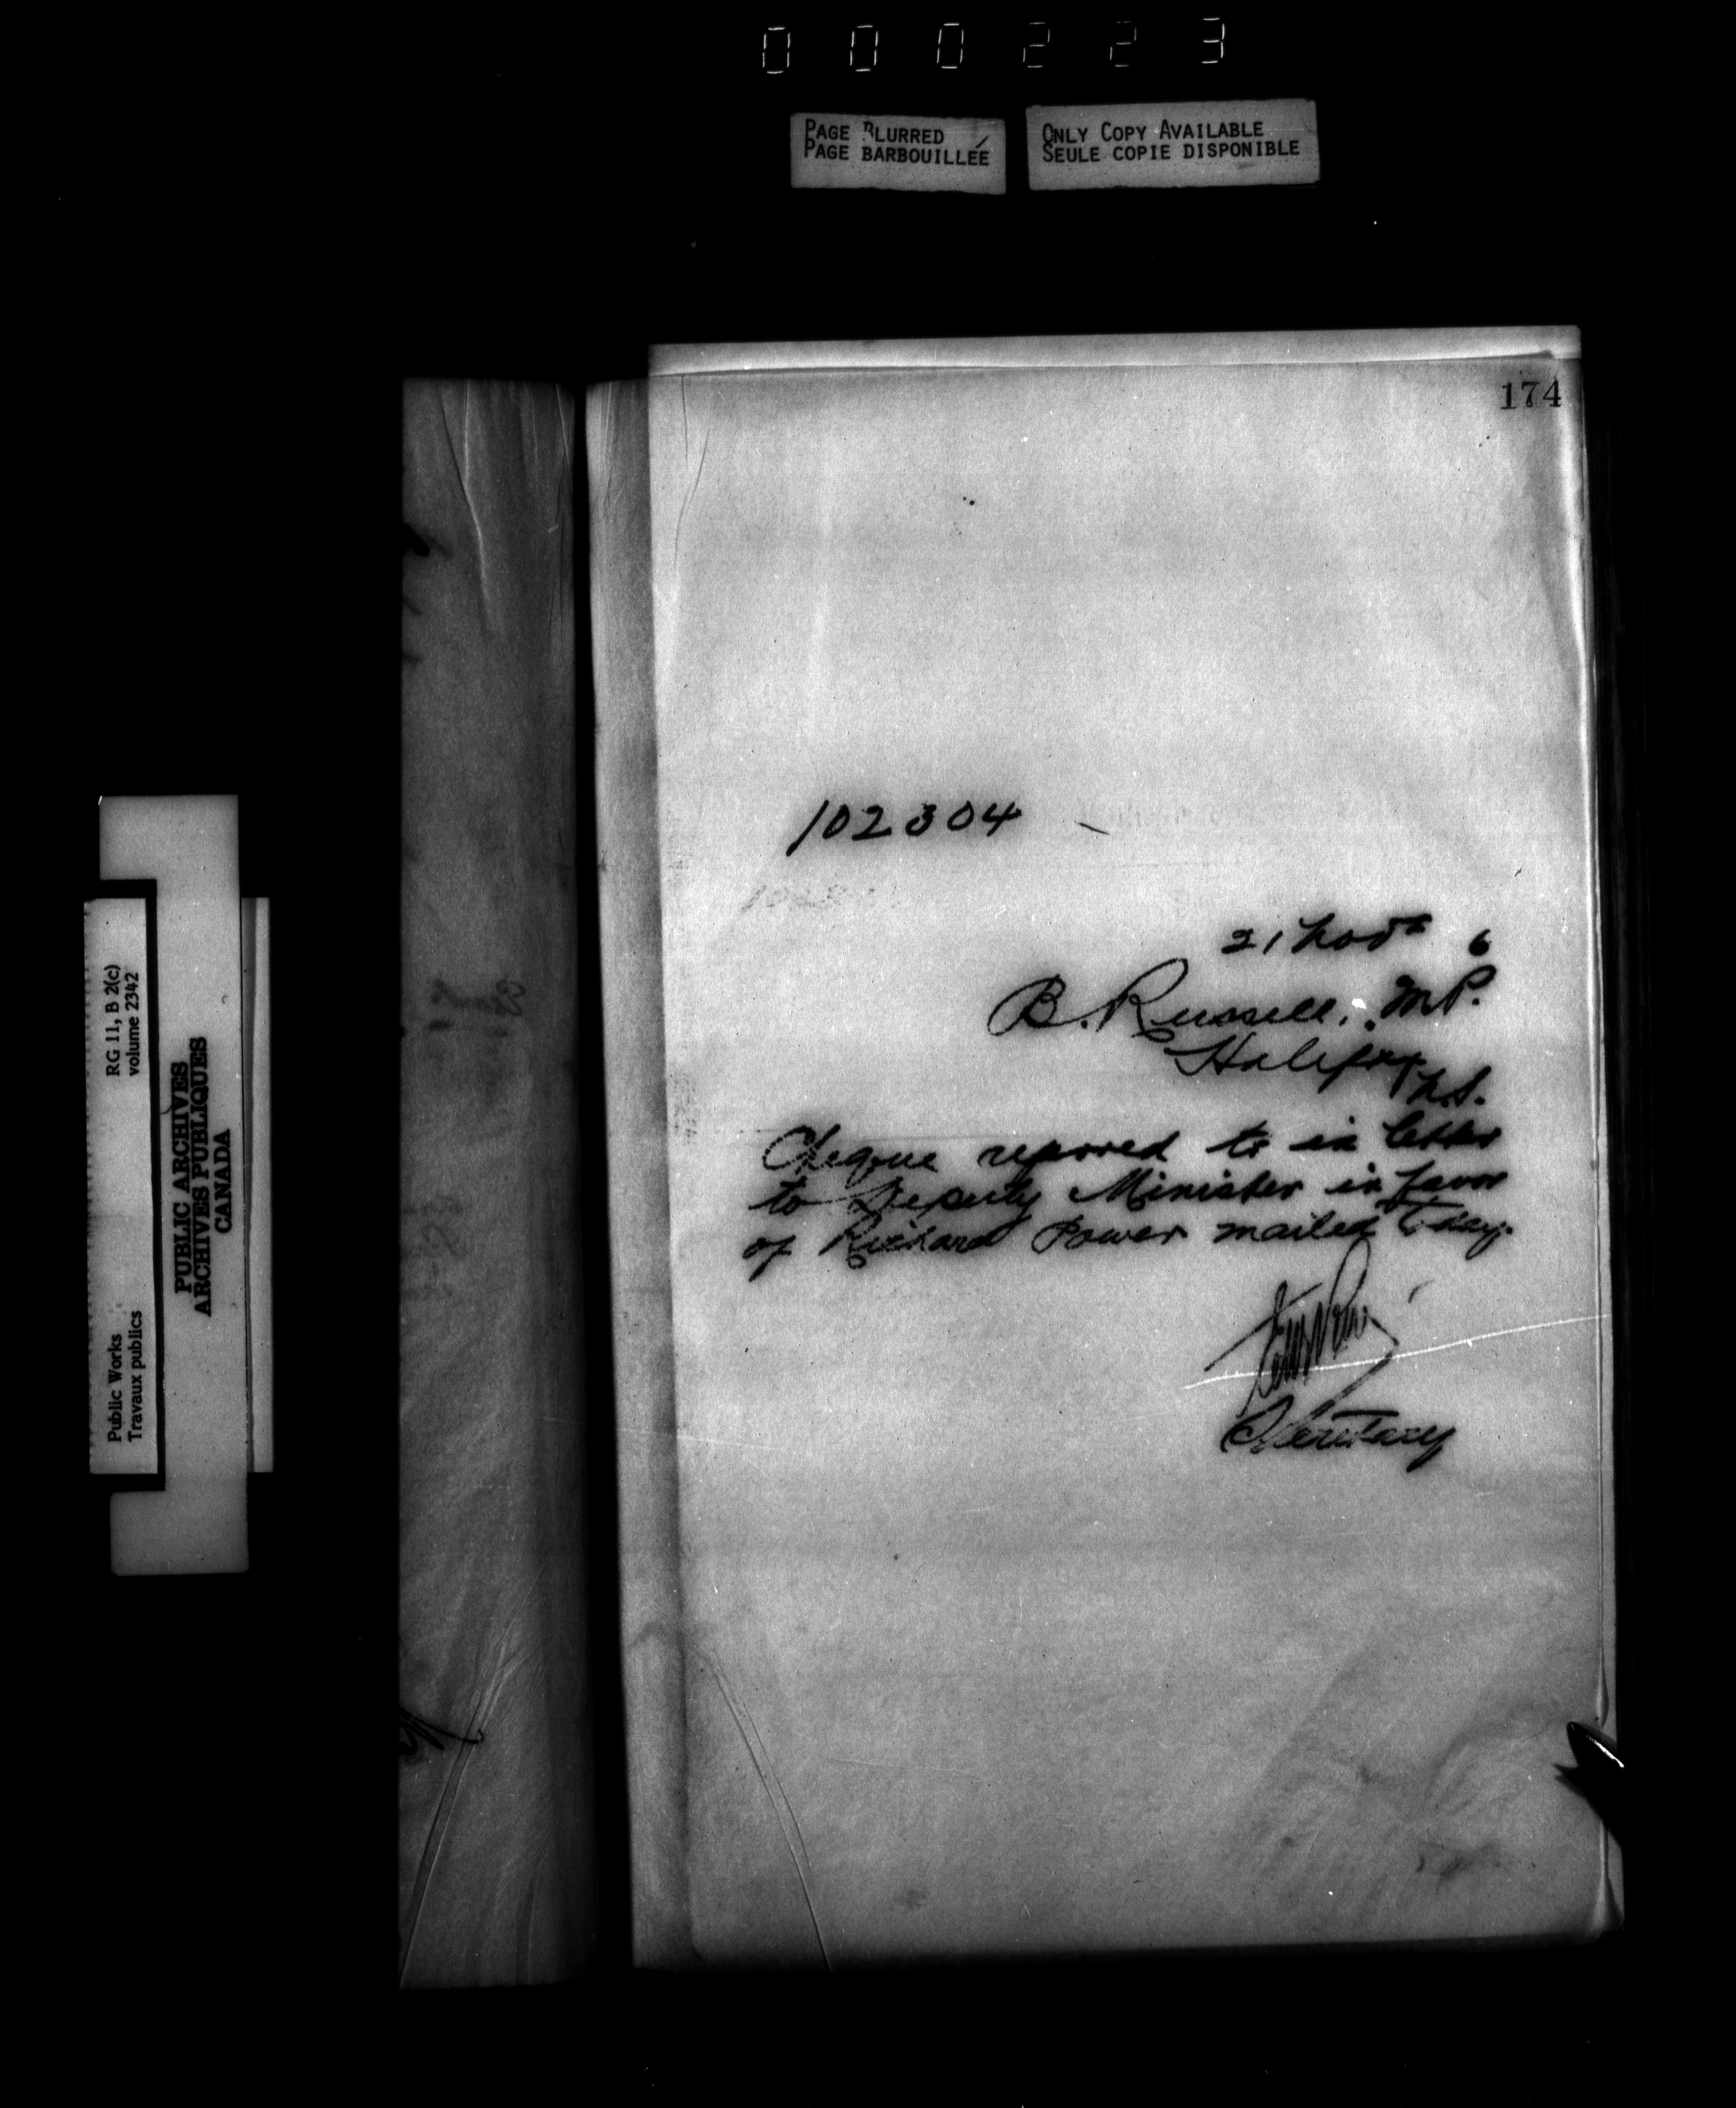 000223
PAGE BLURRED
PAGE BARBOUILLÉE
ONLY COPY AVAILABLE
SEULE COPIE DISPONIBLE
174
102304
21 Novr 6
B. Russell, M.P.
Halifax,
N.S.
Cheque referred to in letter
to Deputy Minister in favor
of Richard Power mailed today.
Secretary
RG 11, B 2(c)
volume 2342
Public Works
Travaux publics
PUBLIC ARCHIVES
ARCHIVES PUBLIQUES
CANADA